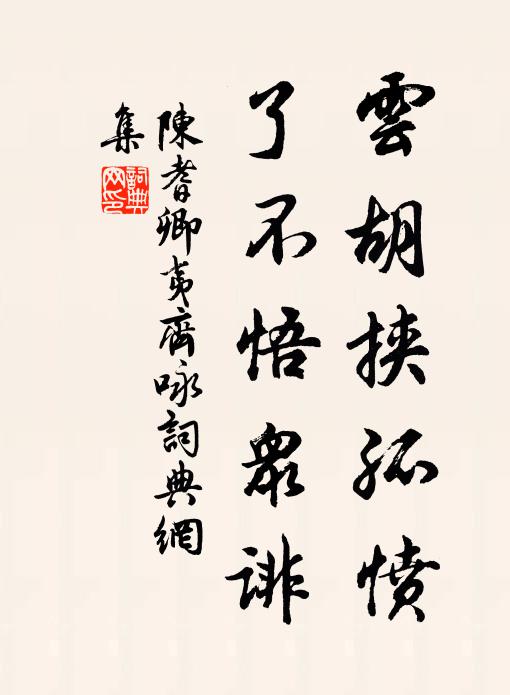 雲胡挾孤憤
了不悟衆誹
陳耆卿夷齊詠詞典網
集
詞典網印